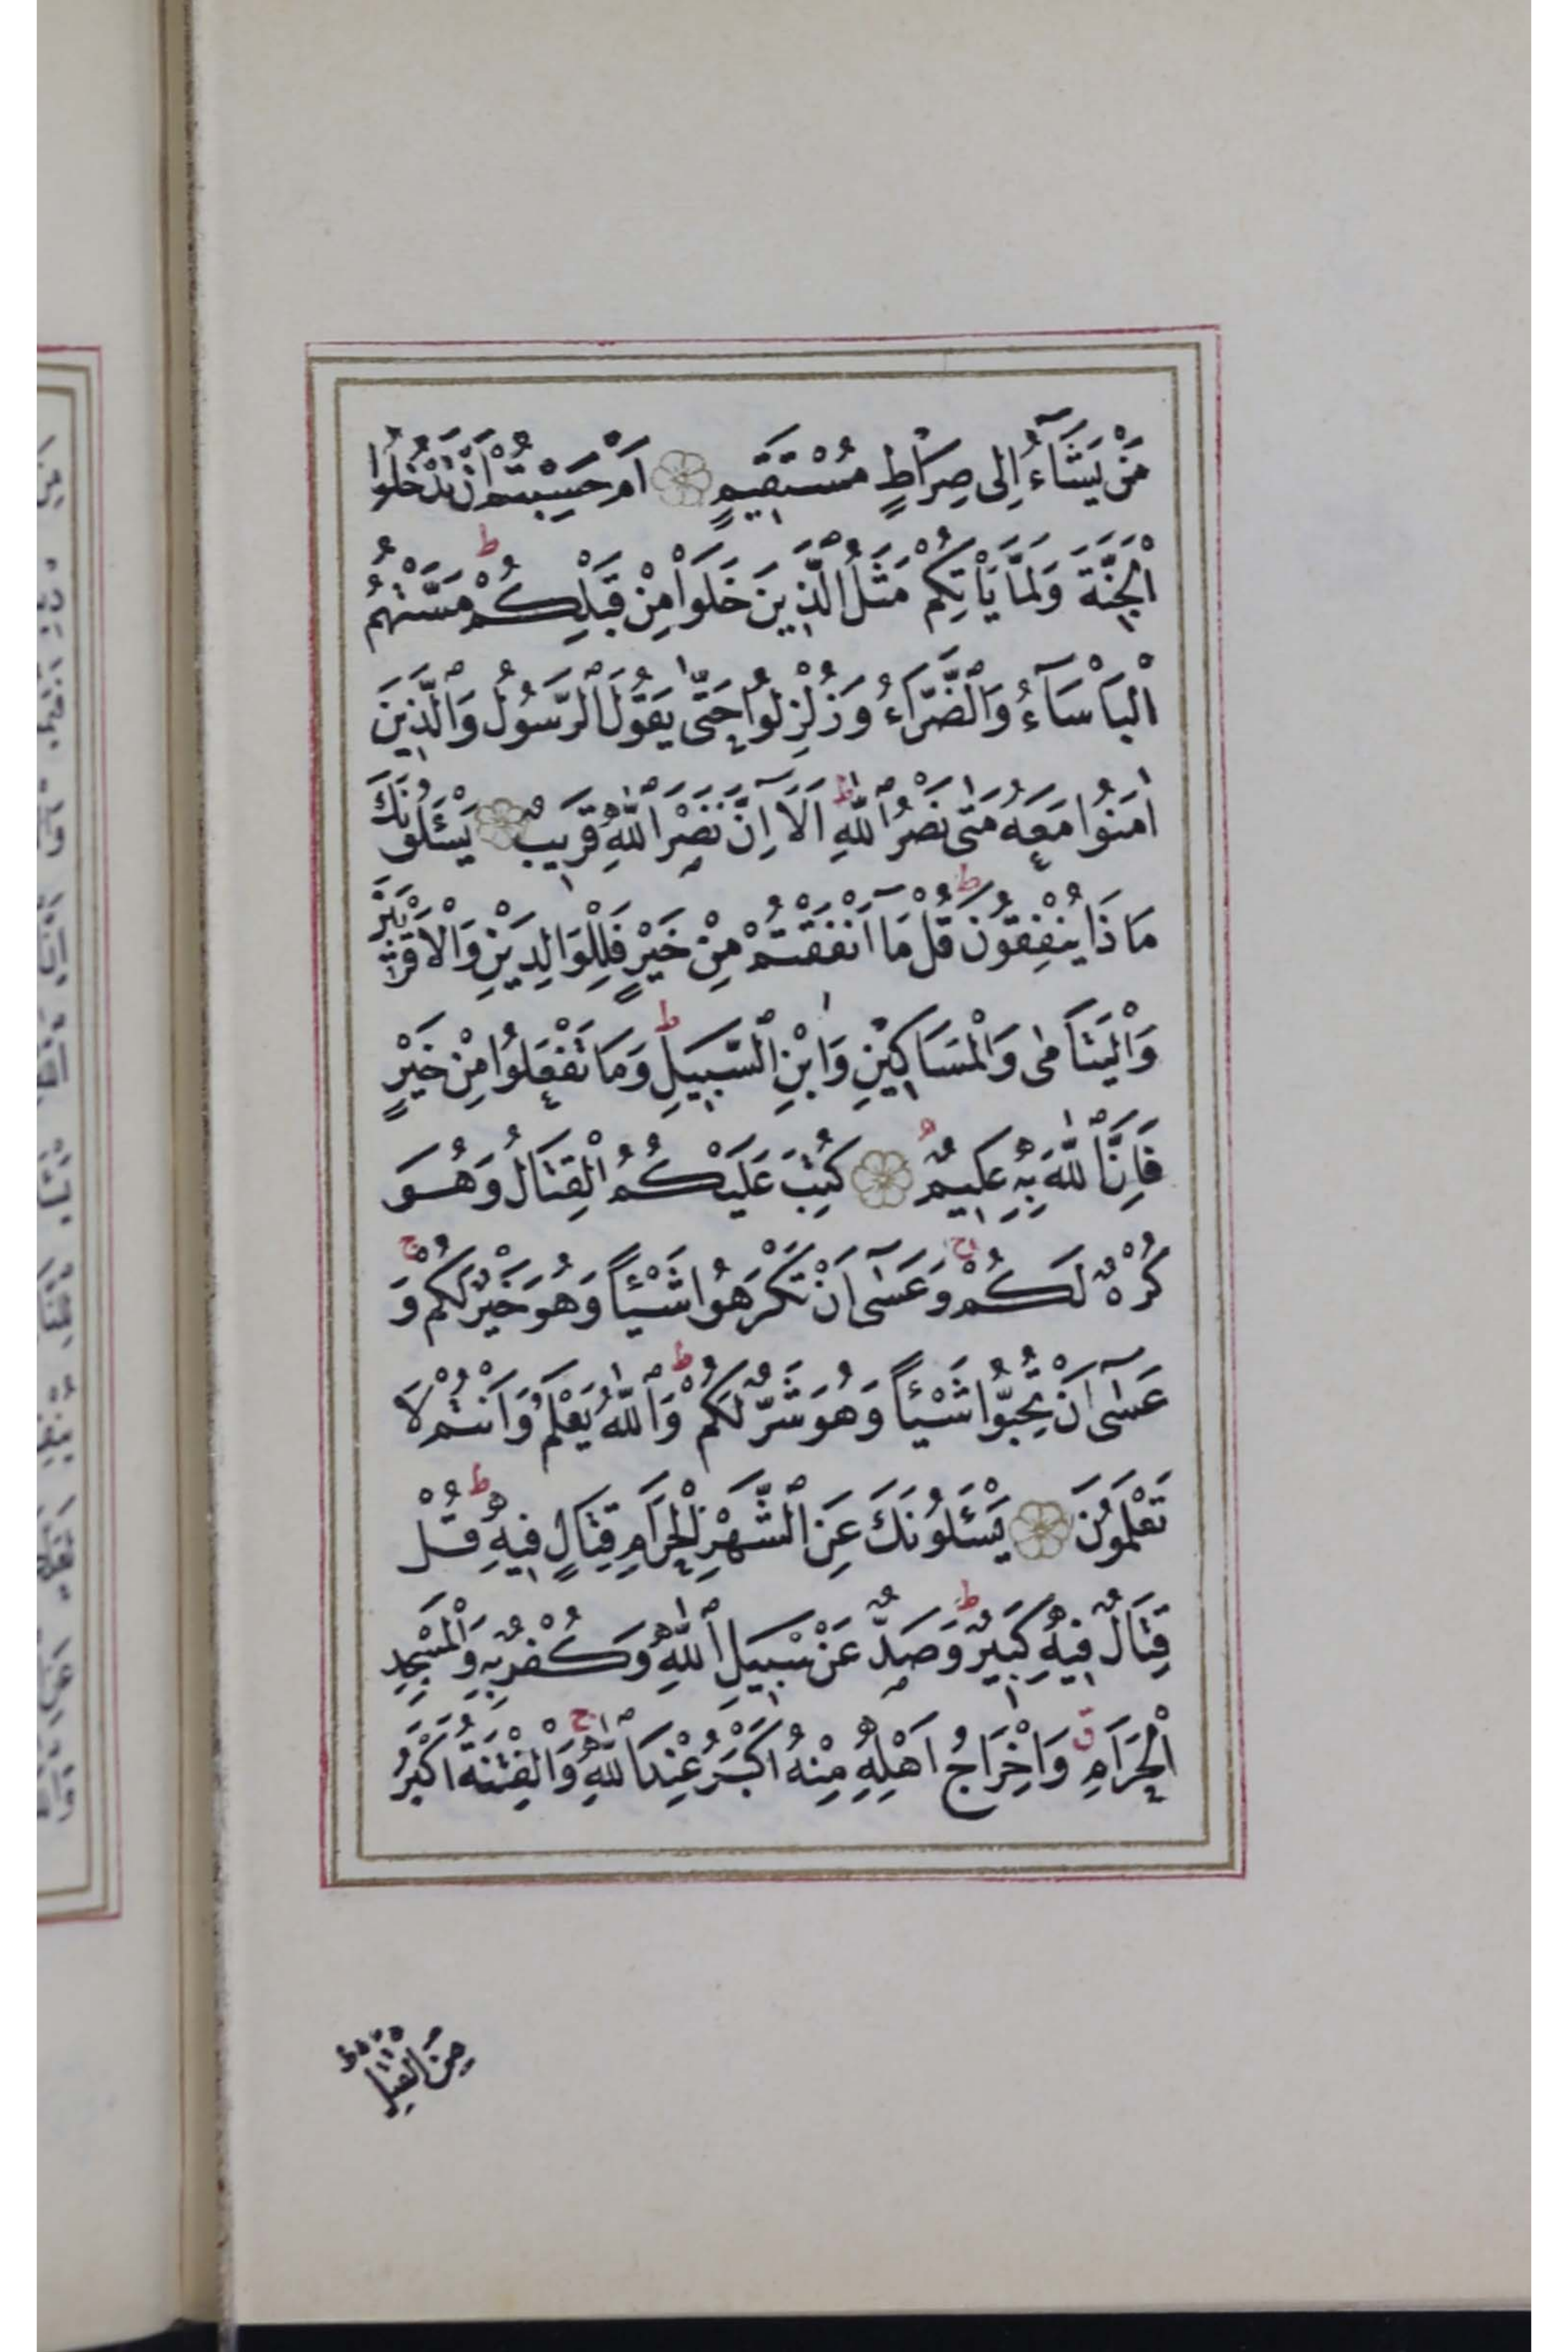 مَنْ يَشَآءُ اِلٰى صِرَاطٍ مُسْتَقٖيمٍ اَمْ حَسِبْتُمْ اَنْ تَدْخُلُوا
الْجَنَّةَ وَلَمَّا يَأْتِكُمْ مَثَلُ الَّذٖينَ خَلَوْا مِنْ قَبْلِكُمْ ط مَسَّتْهُمُ
الْبَأْسَآءُ وَالضَّرَّاءُ وَزُلْزِلُوا حَتّٰى يَقُولَ الرَّسُولُ وَالَّذٖينَ
اٰمَنُوا مَعَهُ مَتٰى نَصْرُ اللّٰهِ ط اَلَآ اِنَّ نَصْرَ اللّٰهِ قَرٖيبٌ يَسْئَلُونَكَ
مَاذَا يُنْفِقُونَ ط قُلْ مَآ اَنْفَقْتُمْ مِنْ خَيْرٍ فَلِلْوَالِدَيْنِ وَالْاَقْرَبٖينَ
وَالْيَتَامٰى وَالْمَسَاكٖينِ وَابْنِ السَّبٖيلِ ط وَمَا تَفْعَلُوا مِنْ خَيْرٍ
فَاِنَّ اللّٰهَ بِهٖ عَلٖيمٌ كُتِبَ عَلَيْكُمُ الْقِتَالُ وَهُوَ
كُرْهٌ لَكُمْ ج وَعَسٰٓى اَنْ تَكْرَهُوا شَيْئًا وَهُوَ خَيْرٌ لَكُمْ ج وَ
عَسٰٓى اَنْ تُحِبُّوا شَيْئًا وَهُوَ شَرٌّ لَكُمْ ط وَاللّٰهُ يَعْلَمُ وَاَنْتُمْ لَا
تَعْلَمُونَ يَسْئَلُونَكَ عَنِ الشَّهْرِ الْحَرَامِ قِتَالٍ فٖيهِ ط قُلْ
قِتَالٌ فٖيهِ كَبٖيرٌ ط وَصَدٌّ عَنْ سَبٖيلِ اللّٰهِ وَكُفْرٌ بِهٖ وَالْمَسْجِدِ
الْحَرَامِ ق وَاِخْرَاجُ اَهْلِهٖ مِنْهُ اَكْبَرُ عِنْدَ اللّٰهِ ج وَالْفِتْنَةُ اَكْبَرُ
مِنَ الْقَتْلِ ط